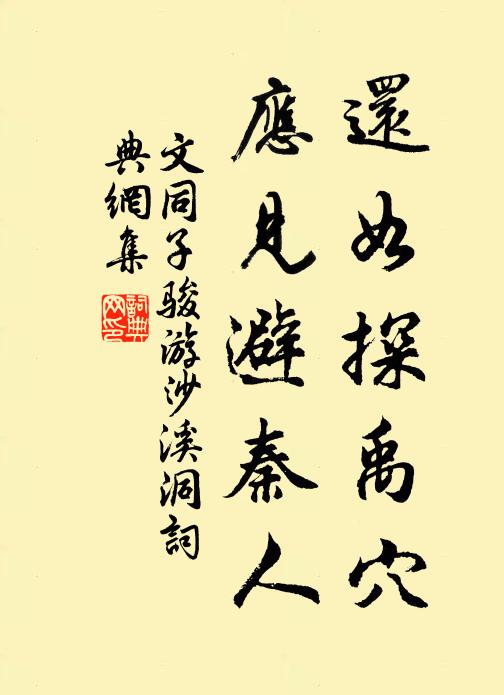 還如探禹穴
應見避秦人
文同子駿游沙溪洞詞
典網集
詞典網印